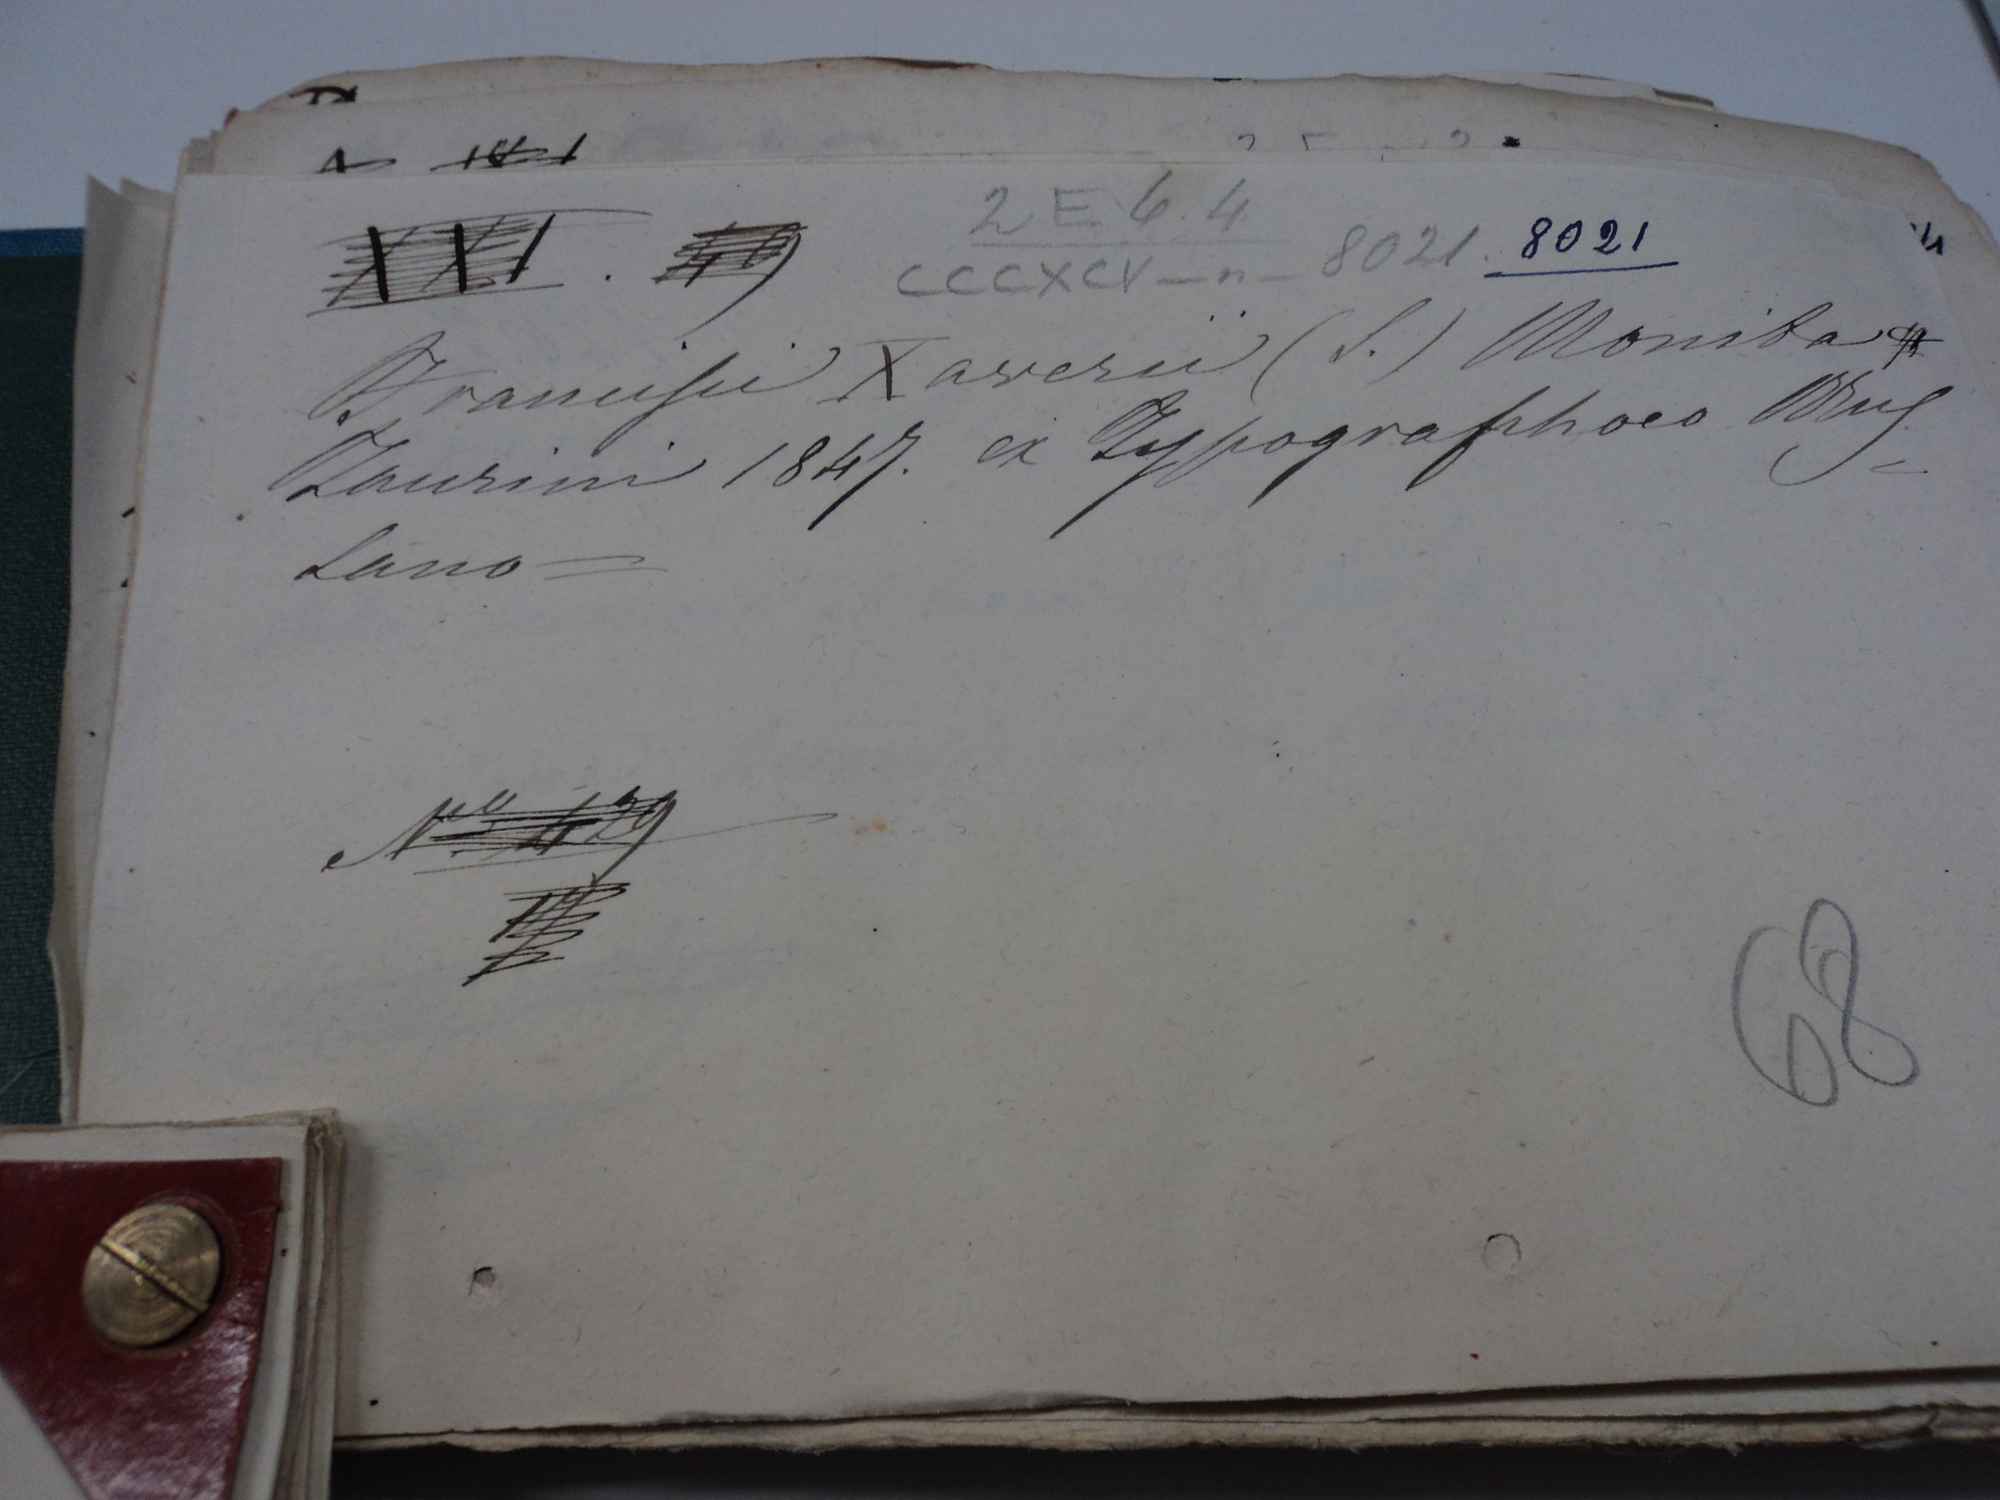 2 E 6. 4
XXI . 49
CCCXCV - n - 8021. 8021
Francisci Xaverii (S.) Monita
Taurini 1847. ex Typographoeo Mug-
lano =
N.
68